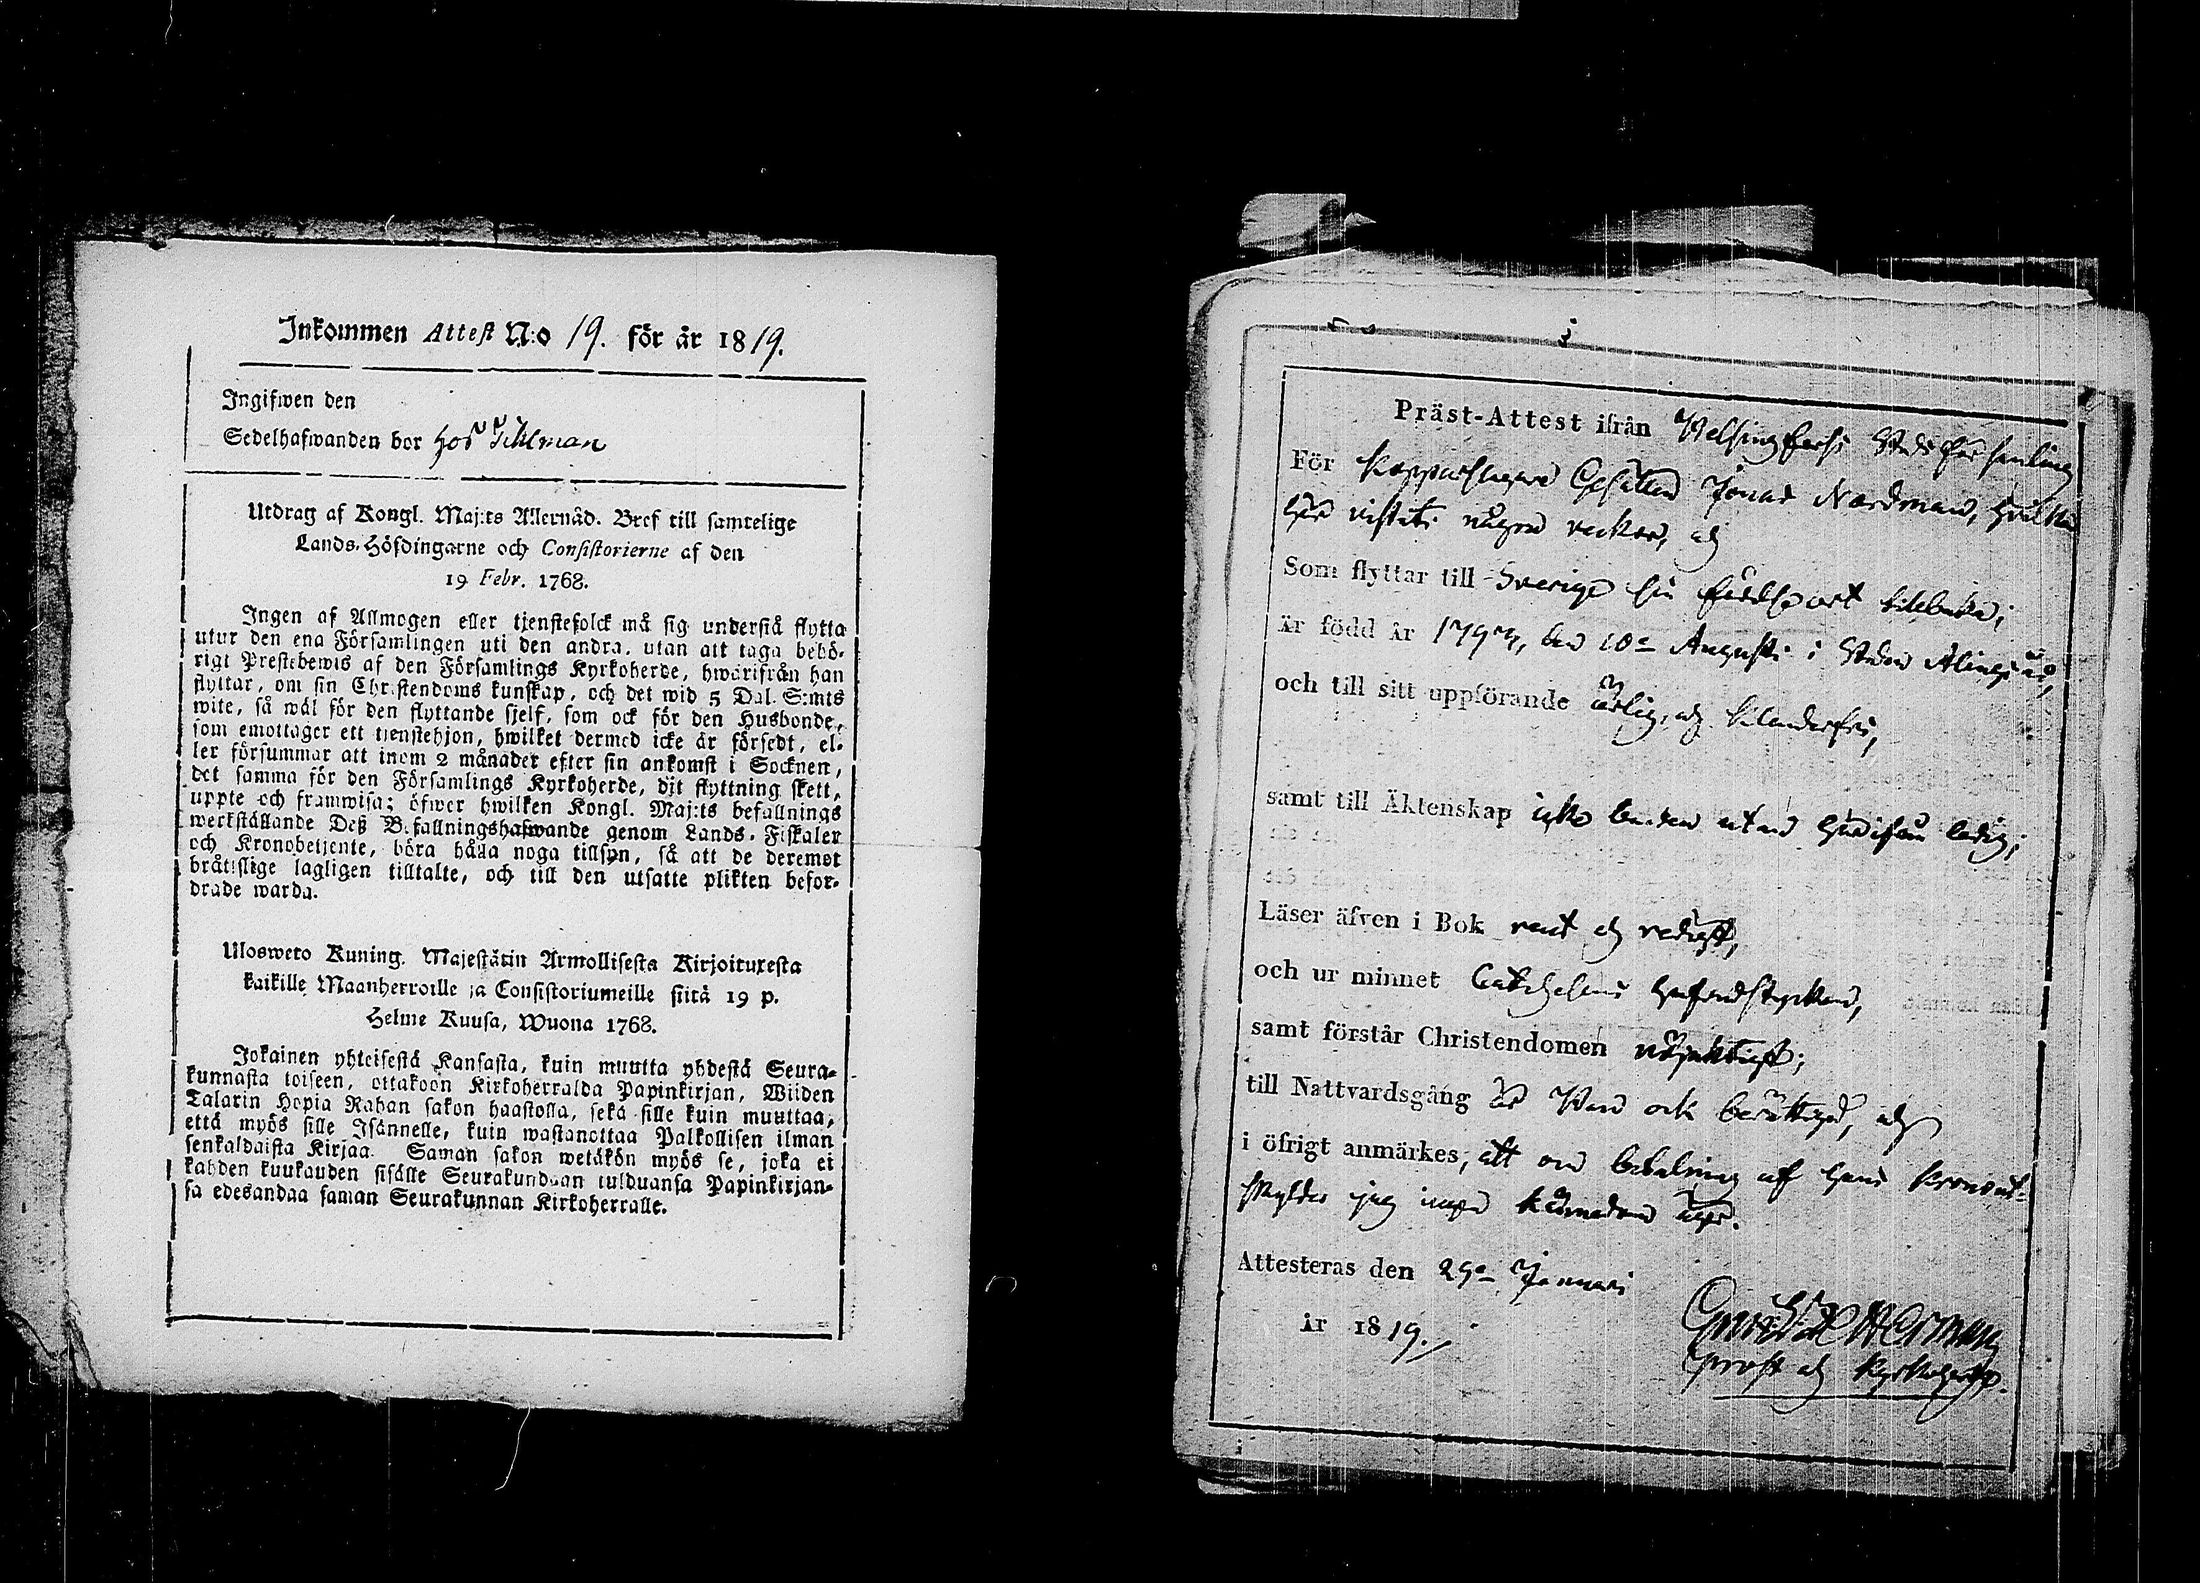 Inkommen Attest N:o 19. för år 1819.
Ingifwen den
Sedelhafwanden bor hos Tihlman
Utdrag af Kongl. Maj:ts Allernåd. Bref till samtelige
Lands-Höfdingarne och Consistorierne af den
19 Febr. 1768.
Ingen af Allmogen eller tjenstefolck må sig understå flytta
utur den ena Församlingen uti den andra, utan att taga behö-
rigt Prestebewis af den Församlings Kyrkoherde, hwarifrån han
flyttar, om sin Christendoms kunskap, och det wid 5 Dal. S:mts
wite, så wäl för den flyttande sjelf, som ock för den Husbonde,
som emottager ett tjenstehjon, hwilket dermed icke är försedt, el-
ler försummar att inom 2 månader efter sin ankomst i Socknen,
det samma för den Församlings Kyrkoherde, dit flyttning skett,
uppte och framwisa; öfwer hwilken Kongl. Maj:ts befallnings
werkställande Deß Befallningshafwande genom Lands-Fiskaler
och Kronobetjente, böra hålla noga tillsyn, så att de deremot
bråtislige lagligen tilltalte, och till den utsatte plikten befor-
drade warda.
Uloswето Kuning. Majestätin Armollisesta Kirjoituxesta
kaikille Maanherroille ja Consistoriumeille siitä 19 p.
Helme Kuusa, Wuona 1768.
Jokainen yhteisestä Kansasta, kuin muutta yhdestä Seura-
kunnasta toiseen, ottakoon Kirkoherralda Papinkirjan, Wiiden
Talarin Hopia Rahan sakon haastolla, sekä sille kuin muuttaa,
että myös sille Isännelle, kuin wastanottaa Palkollisen ilman
senkaldaista Kirjaa. Saman sakon wetäkön myös se, joka ei
kahden kuukauden sisälle Seurakundaan tulduansa Papinkirjan-
sa edesandaa saman Seurakunnan Kirkoherralle.
Präst-Attest ifrån Helsingfors Stads församling
För Kopparslagare Gesällen Jonas Nordman, hvilken
här vistats några veckor, och
Som flyttar till Sverige sin födelseort tillbaka;
är född år 1797, den 10de Augusti i Staden Alingsås,
och till sitt uppförande ärlig, och klanderfri,
samt till Äktenskap icke bunden utan härifrån ledig;
Läser äfven i Bok rent och redigt,
och ur minnet Catechesens hufvudstycken,
samt förstår Christendomen nöjaktigt;
till Nattvardsgång är Van och berättigad, och
i öfrigt anmärkes, att om betalning af hans Kronout-
skylder jag ingen kännedom äger.
Attesteras den 29de Januari
år 1819.
Prost och Kyrkoherde.